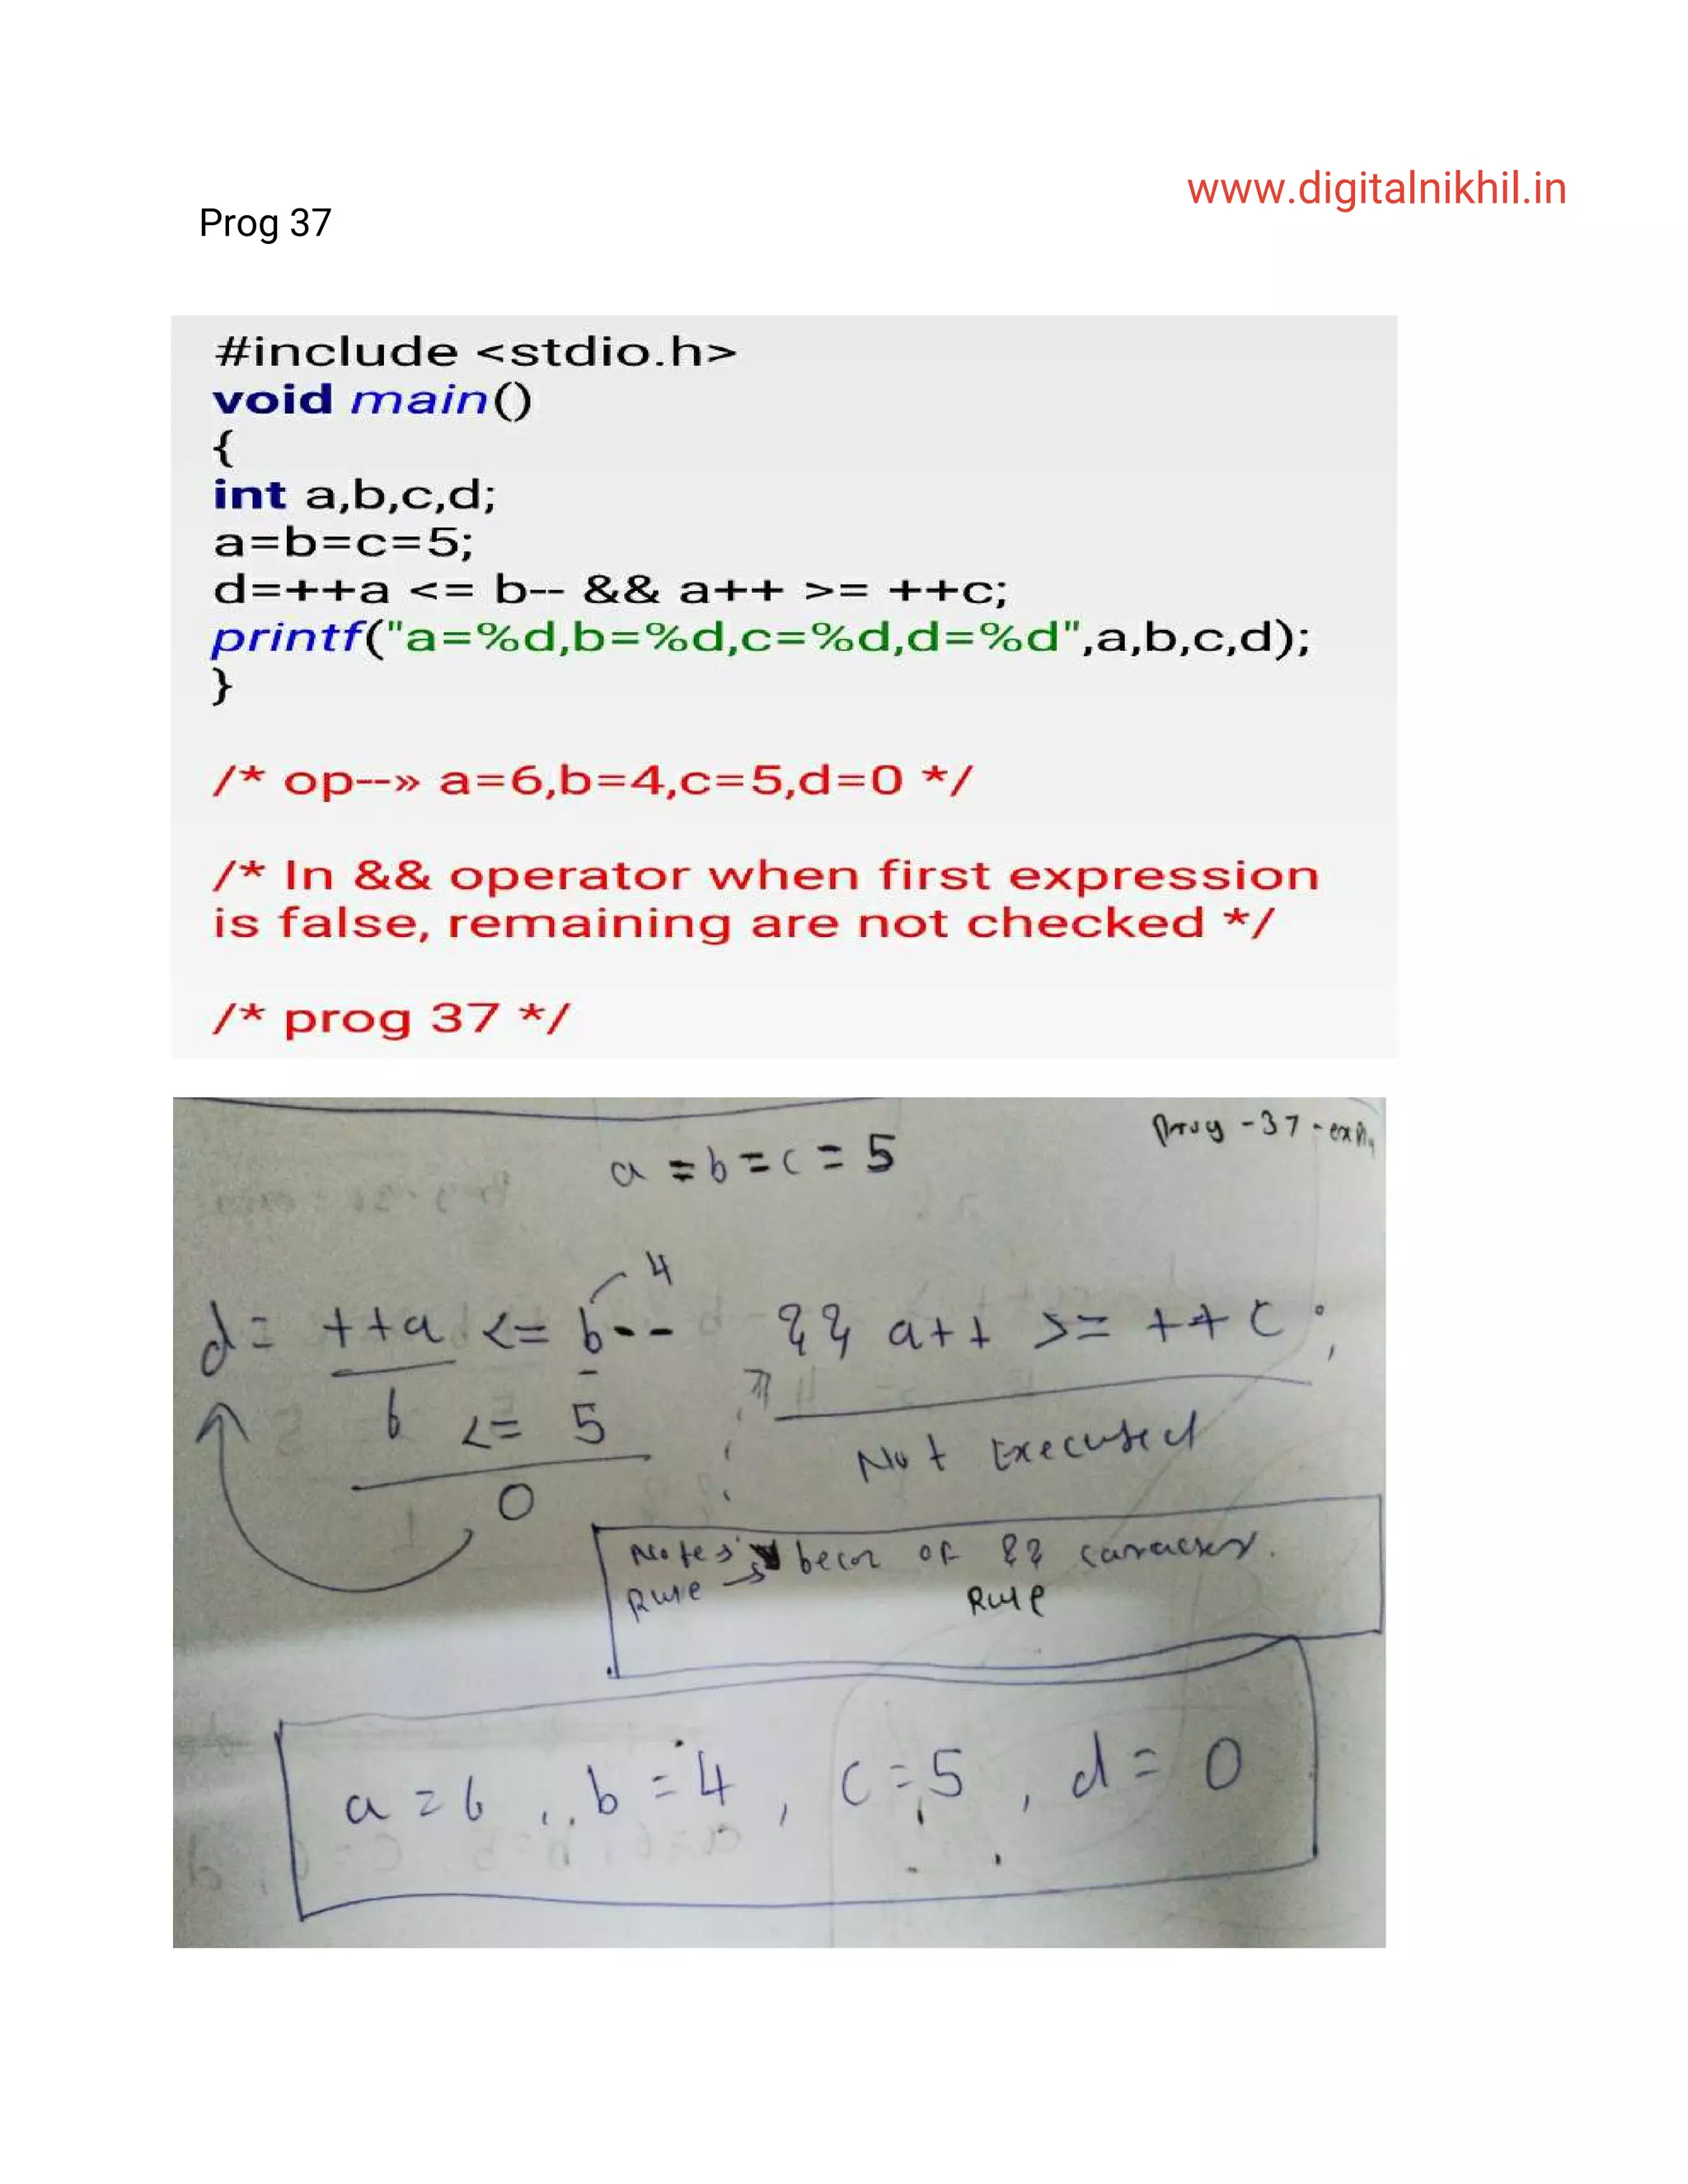 www.digitalnikhil.in
Prog 37
#include <stdio.h>
void main()
{
int a,b,c,d;
a=b=c=5;
d=++a <= b-- && a++ >= ++c;
printf("a=%d,b=%d,c=%d,d=%d",a,b,c,d);
}
/* op--» a=6,b=4,c=5,d=0 */
/* In && operator when first expression
is false, remaining are not checked */
/* prog 37 */
Prog - 37 -
a = b = c = 5
4
d = ++a <= b-- && a++ >= ++c ;
6 <= 5
Not Executed
0
Notes of &&
Rule Rule
a = 6 , b = 4 , c = 5 , d = 0